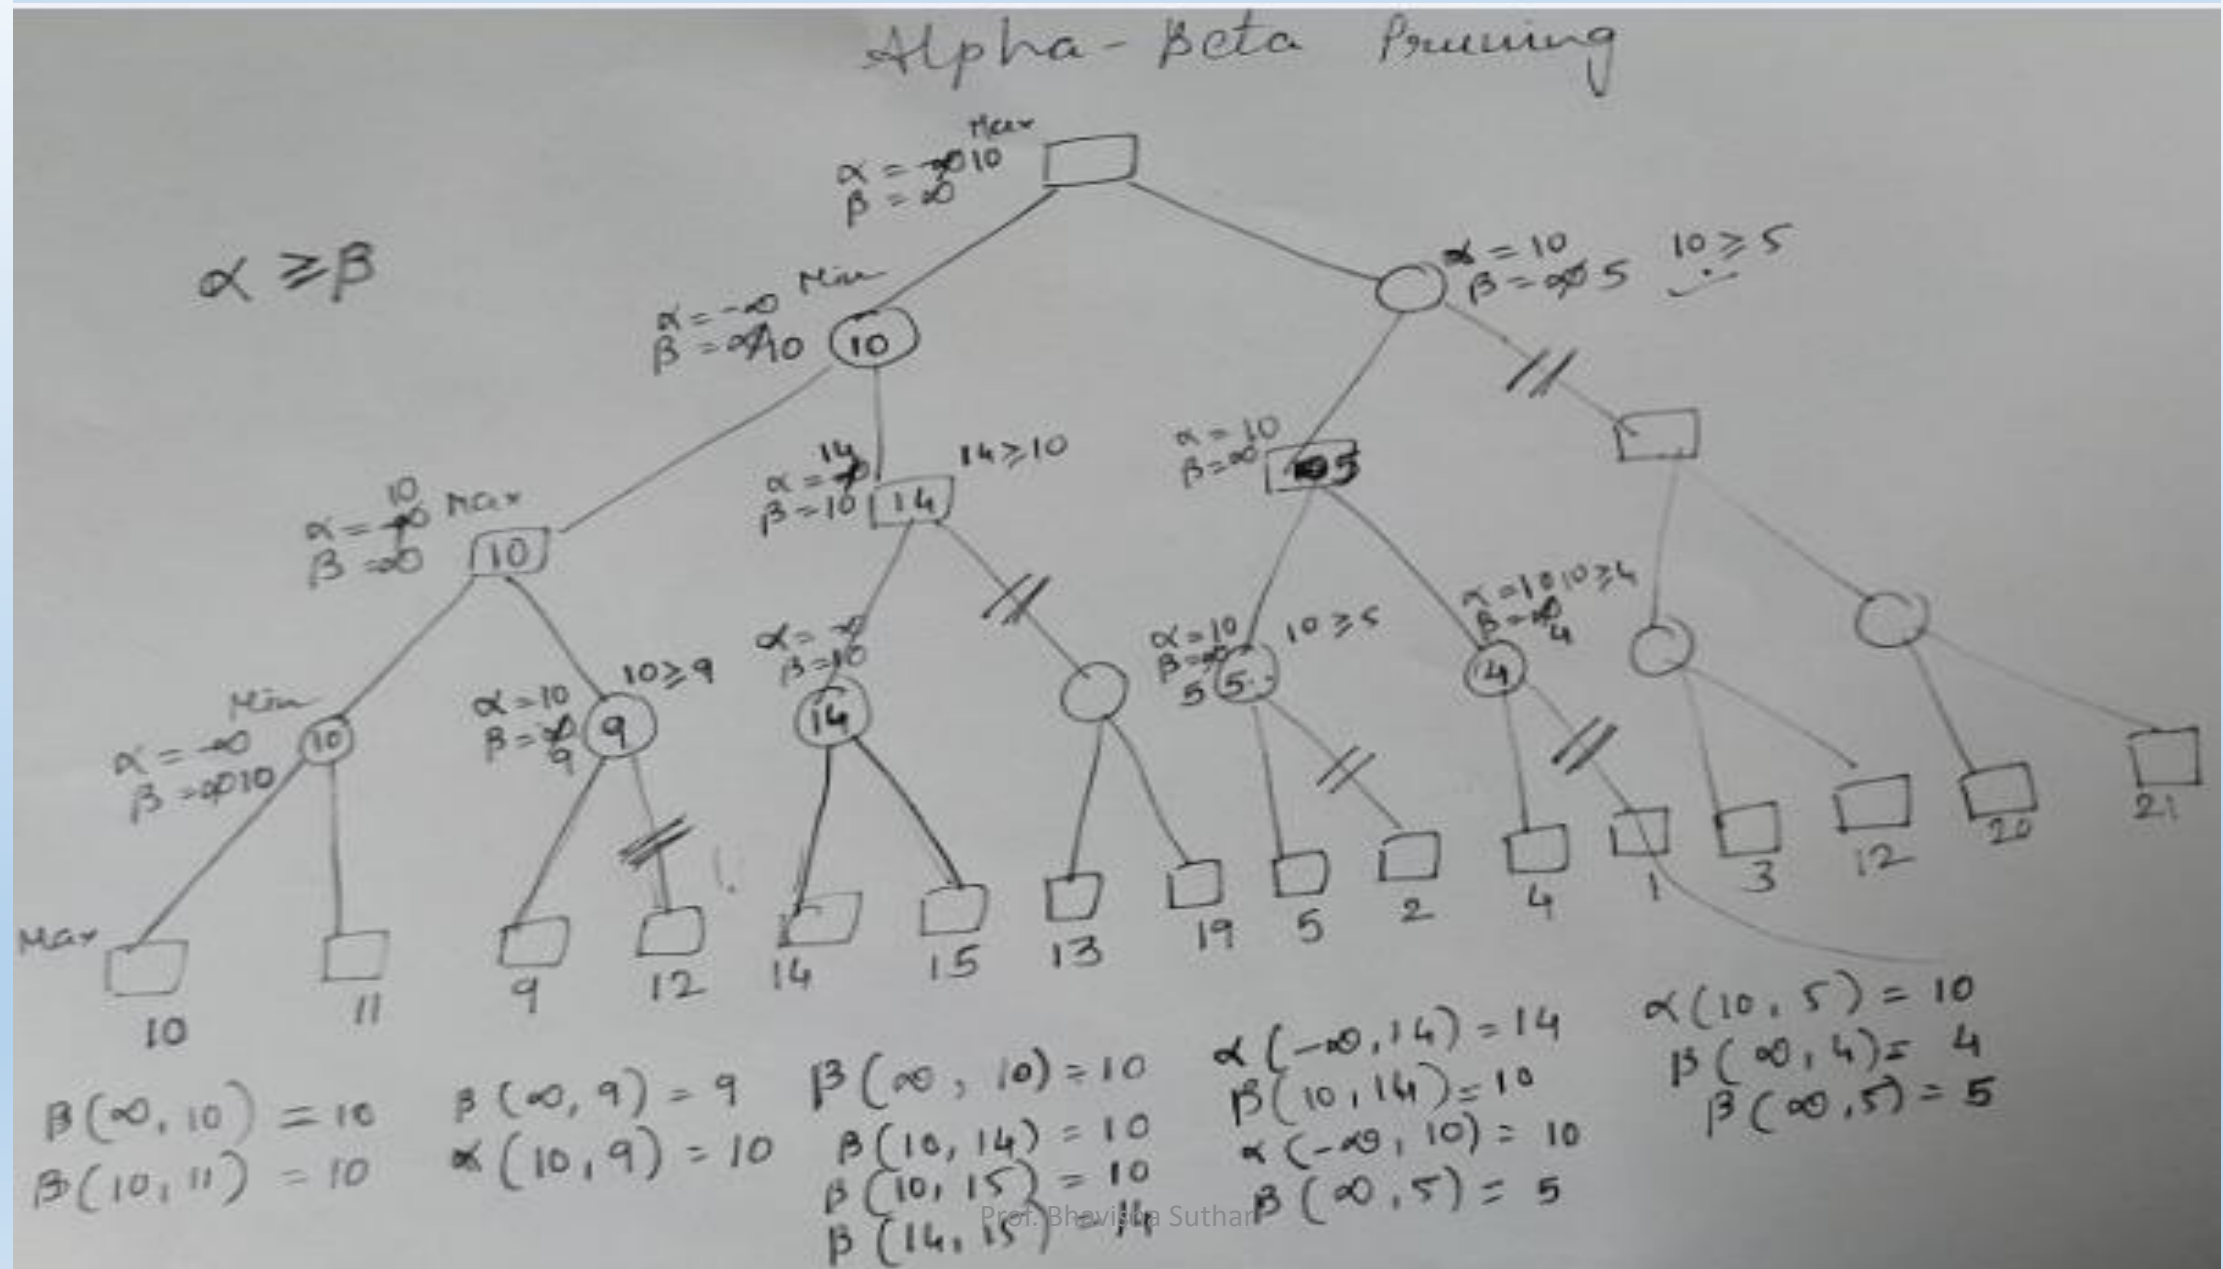 Alpha-Beta Pruning
Max
α = -∞ 10
β = ∞
α ≥ β
Min
α = -∞
β = ∞ 10
10
α = 10
β = ∞ 5
10 ≥ 5
10
α = -∞
β = ∞
Max
10
14
α = -∞
β = 10
14
14 ≥ 10
α = 10
β = ∞
5
Min
α = -∞
β = ∞ 10
10
α = 10
β = ∞
9
9
10 ≥ 9
α = -∞
β = 10
14
α = 10
β = ∞
5
5
10 ≥ 5
α = 10
β = ∞
4
10 ≥ 4
4
Max
10
11
9
12
14
15
13
19
5
2
4
1
3
12
20
21
β(∞, 10) = 10
β(10, 11) = 10
β(∞, 9) = 9
α(10, 9) = 10
β(∞, 10) = 10
β(10, 14) = 10
β(10, 15) = 10
β(14, 15) = 14
α(-∞, 14) = 14
β(10, 14) = 10
α(-∞, 10) = 10
β(∞, 5) = 5
α(10, 5) = 10
β(∞, 4) = 4
β(∞, 5) = 5
Prof. Bhavisha Suthar